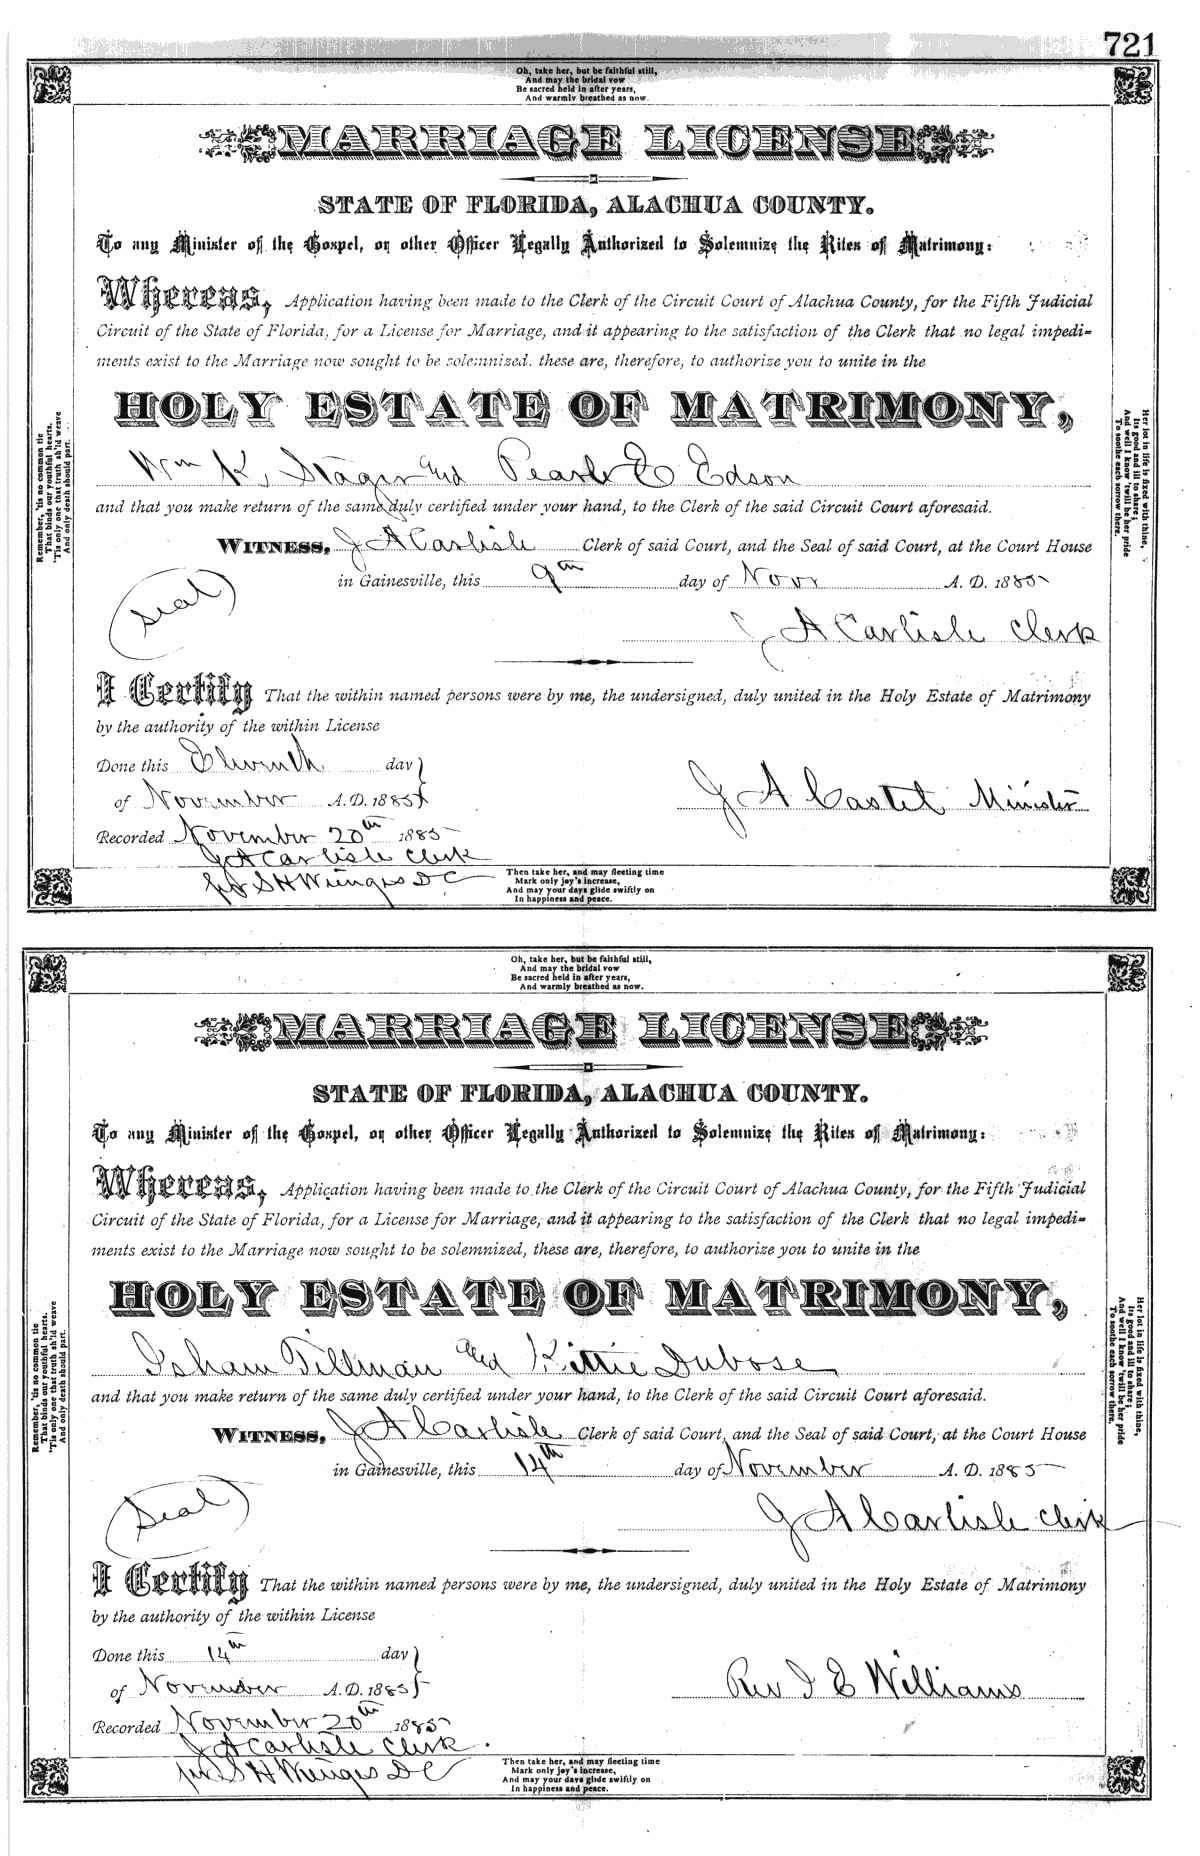 721
Oh, take her, but be faithful still,
And may the bridal vow
Be sacred held in after years,
And warmly breathed as now.
MARRIAGE LICENSE
STATE OF FLORIDA, ALACHUA COUNTY.
To any Minister of the Gospel, or other Officer Legally Authorized to Solemnize the Rites of Matrimony:
Whereas, Application having been made to the Clerk of the Circuit Court of Alachua County, for the Fifth Judicial
Circuit of the State of Florida, for a License for Marriage, and it appearing to the satisfaction of the Clerk that no legal impedi-
ments exist to the Marriage now sought to be solemnized, these are, therefore, to authorize you to unite in the
HOLY ESTATE OF MATRIMONY,
Wm K. Stager and Pearl E Edson
and that you make return of the same duly certified under your hand, to the Clerk of the said Circuit Court aforesaid.
WITNESS, J A Carlisle Clerk of said Court, and the Seal of said Court, at the Court House
in Gainesville, this 9th day of Novr A. D. 1885
(Seal)
J A Carlisle Clerk
I Certify That the within named persons were by me, the undersigned, duly united in the Holy Estate of Matrimony
by the authority of the within License
Done this Eleventh day
of November A.D. 1885
J A Castel Minister
Recorded November 20th 1885
J A Carlisle Clerk
pr S H Wienges D C
Remember, 'tis no common tie
That binds our youthful hearts.
'Tis only one that truth sh'ld weave
And only death should part.
Her lot in life is fixed with thine,
Its good and ill to share;
And well I know 'twill be her pride
To soothe each sorrow there.
Then take her, and may fleeting time
Mark only joy's increase,
And may your days glide swiftly on
In happiness and peace.
Oh, take her, but be faithful still,
And may the bridal vow
Be sacred held in after years,
And warmly breathed as now.
MARRIAGE LICENSE
STATE OF FLORIDA, ALACHUA COUNTY.
To any Minister of the Gospel, or other Officer Legally Authorized to Solemnize the Rites of Matrimony:
Whereas, Application having been made to the Clerk of the Circuit Court of Alachua County, for the Fifth Judicial
Circuit of the State of Florida, for a License for Marriage, and it appearing to the satisfaction of the Clerk that no legal impedi-
ments exist to the Marriage now sought to be solemnized, these are, therefore, to authorize you to unite in the
HOLY ESTATE OF MATRIMONY,
Isham Tillman and Kittie Dubose
and that you make return of the same duly certified under your hand, to the Clerk of the said Circuit Court aforesaid.
WITNESS, J A Carlisle Clerk of said Court, and the Seal of said Court, at the Court House
in Gainesville, this 14th day of November A. D. 1885
(Seal)
J A Carlisle Clerk
I Certify That the within named persons were by me, the undersigned, duly united in the Holy Estate of Matrimony
by the authority of the within License
Done this 14th day
of November A.D. 1885
Rev I E Williams
Recorded November 20th 1885
J A Carlisle Clerk.
pr S H Wienges D C
Remember, 'tis no common tie
That binds our youthful hearts.
'Tis only one that truth sh'ld weave
And only death should part.
Her lot in life is fixed with thine,
Its good and ill to share;
And well I know 'twill be her pride
To soothe each sorrow there.
Then take her, and may fleeting time
Mark only joy's increase,
And may your days glide swiftly on
In happiness and peace.